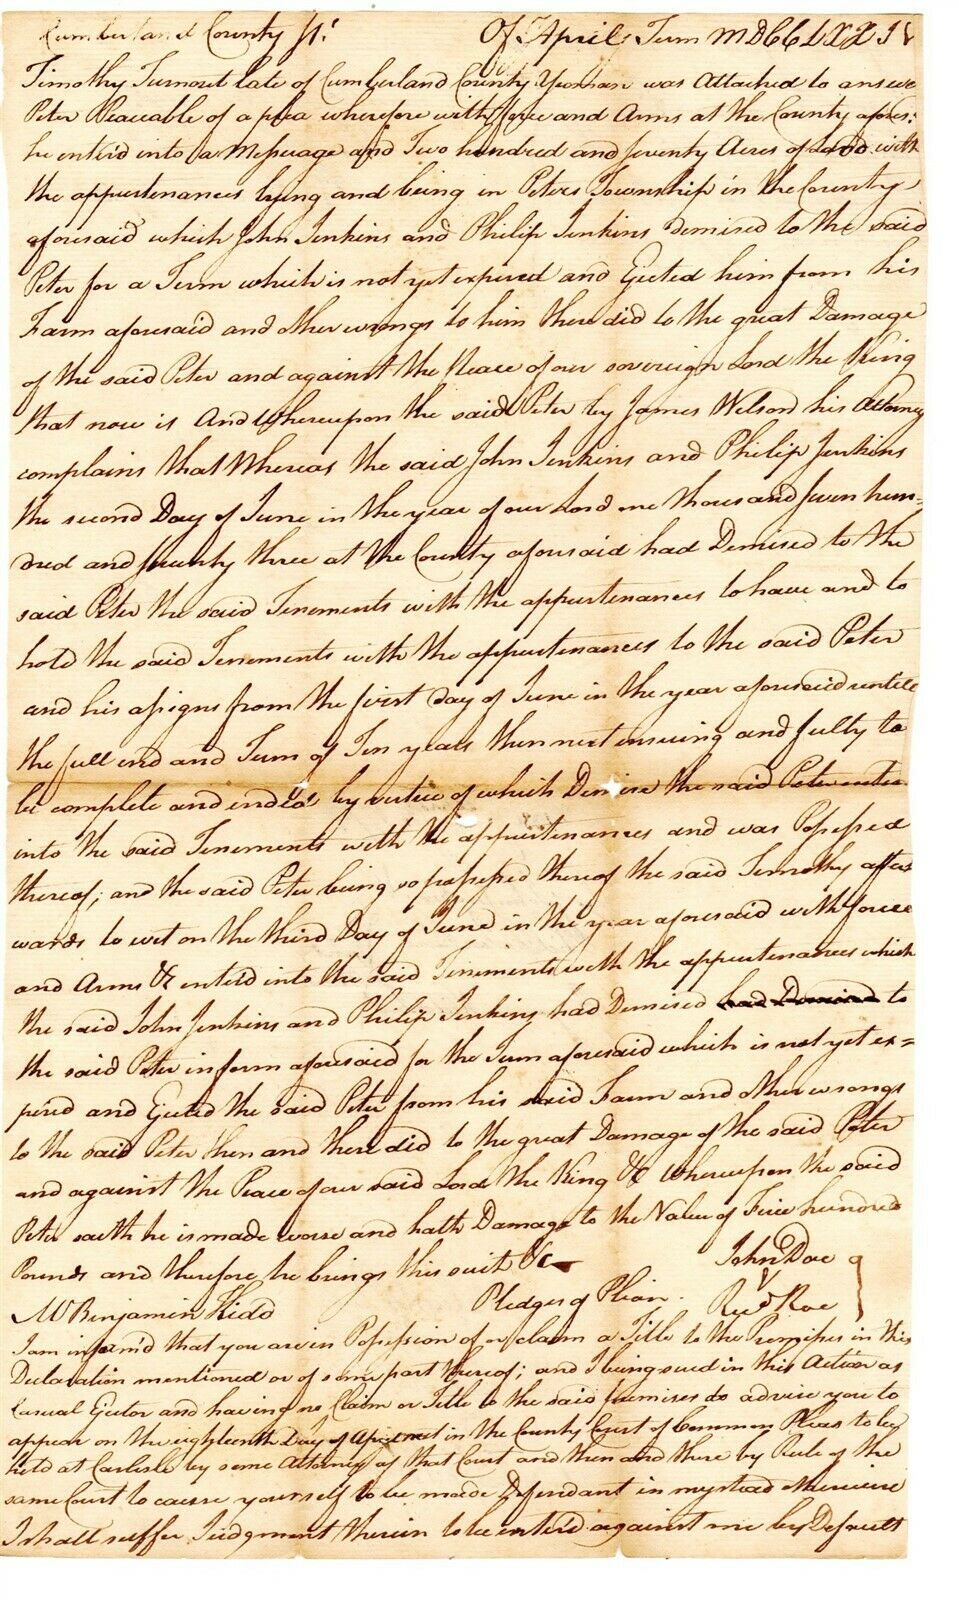 Cumberland County Ss. Of April Term MDCCLXXIV
Timothy Turnout late of Cumberland County Yeoman was Attached to answer
Peter Peaceable of a plea wherefore with force and Arms at the County afores:
he enter'd into a Messuage and Two hundred and seventy Acres of Land with
the appurtenances lying and being in Peters Township in the County
aforesaid which John Jenkins and Philip Jenkins Demised to the said
Peter for a Term which is not yet expired and Ejected him from his
Farm aforesaid and other wrongs to him there did to the great Damage
of the said Peter and against the Peace of our sovereign Lord the King
that now is And Whereupon the said Peter by James Wilson his Attorney
complains that Whereas the said John Jenkins and Philip Jenkins
the second Day of June in the year of our Lord one thousand seven hun=
dred and seventy three at the County aforesaid had Demised to the
said Peter the said Tenements with the appurtenances to have and to
hold the said Tenements with the appurtenances to the said Peter
and his assigns from the first Day of June in the year aforesaid untill
the full end and Term of Ten years then next ensuing and fully to
be complete and ended by virtue of which Demise the said Peter enter
into the said Tenements with the appurtenances and was Possessed
thereof; and the said Peter being so possessed thereof the said Timothy after
wards to wit on the third Day of June in the year aforesaid with force
and Arms &c enter'd into the said Tenements with the appurtenances which
the said John Jenkins and Philip Jenkins had Demised had Demised to
the said Peter in form aforesaid for the Term aforesaid which is not yet ex=
pired and Ejected the said Peter from his said Farm and other wrongs
to the said Peter then and there did to the great Damage of the said Peter
and against the Peace of our said Lord the King &c Whereupon the said
Peter saith he is made worse and hath Damage to the Value of Five hundred
Pounds and therefore he brings this suit &c
John Doe
Pledges of
Ricd Roe
Mr Benjamin Kidd
I am inform'd that you are in Possession of or claim a Title to the Premises in this
Declaration mentioned or of some part thereof; and I being sued in this Action as
Casual Ejector and having no Claim or Title to the said premises do advise you to
appear on the eighteenth Day of April next in the County Court of Common Pleas to be
held at Carlisle by some Attorney of that Court and then and there by Rule of the
same Court to cause yourself to be made Defendant in my stead otherwise
I shall suffer Judgment therein to be enter'd against me by Default